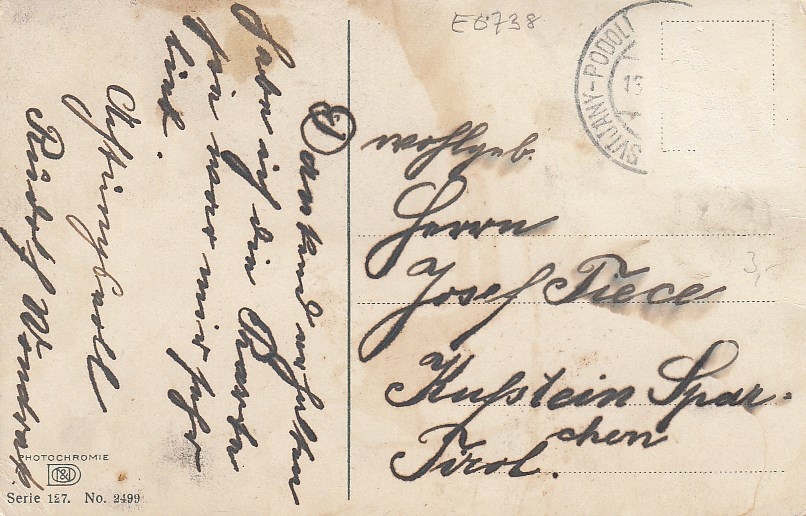 E6738
SVIJANY-PODOLÍ
Dankend erhalten
habe ich die Karte
mir sehr
lieb.
Achtungsvoll
Rudolf Wondrak.
wohlgeb.
Herrn
Josef Tiece
Kufstein Spar-
chen
Tirol.
3,-
PHOTOCHROMIE
Serie 127. No. 2499